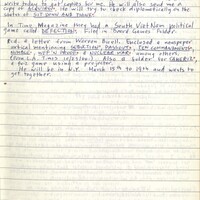 write today to get copies for me. He will also send me a
copy of He will try to check diplomatically on the
status of SIT DOWN AND THINK!
In Time Magazine they had a South VietNam political
game called DEFECTION. Filed in Board Games folder.
Rcd. a letter from Warren Enclosed a newspaper
article mentioning SEDUCTION, TEN COMMANDMENTS,
NUCLEAR WAR among others.
(From L.A. Times ). Also a folder for
a bus game using a projector.
He will be in N.Y. March 15th to 19th and wants to
get together.